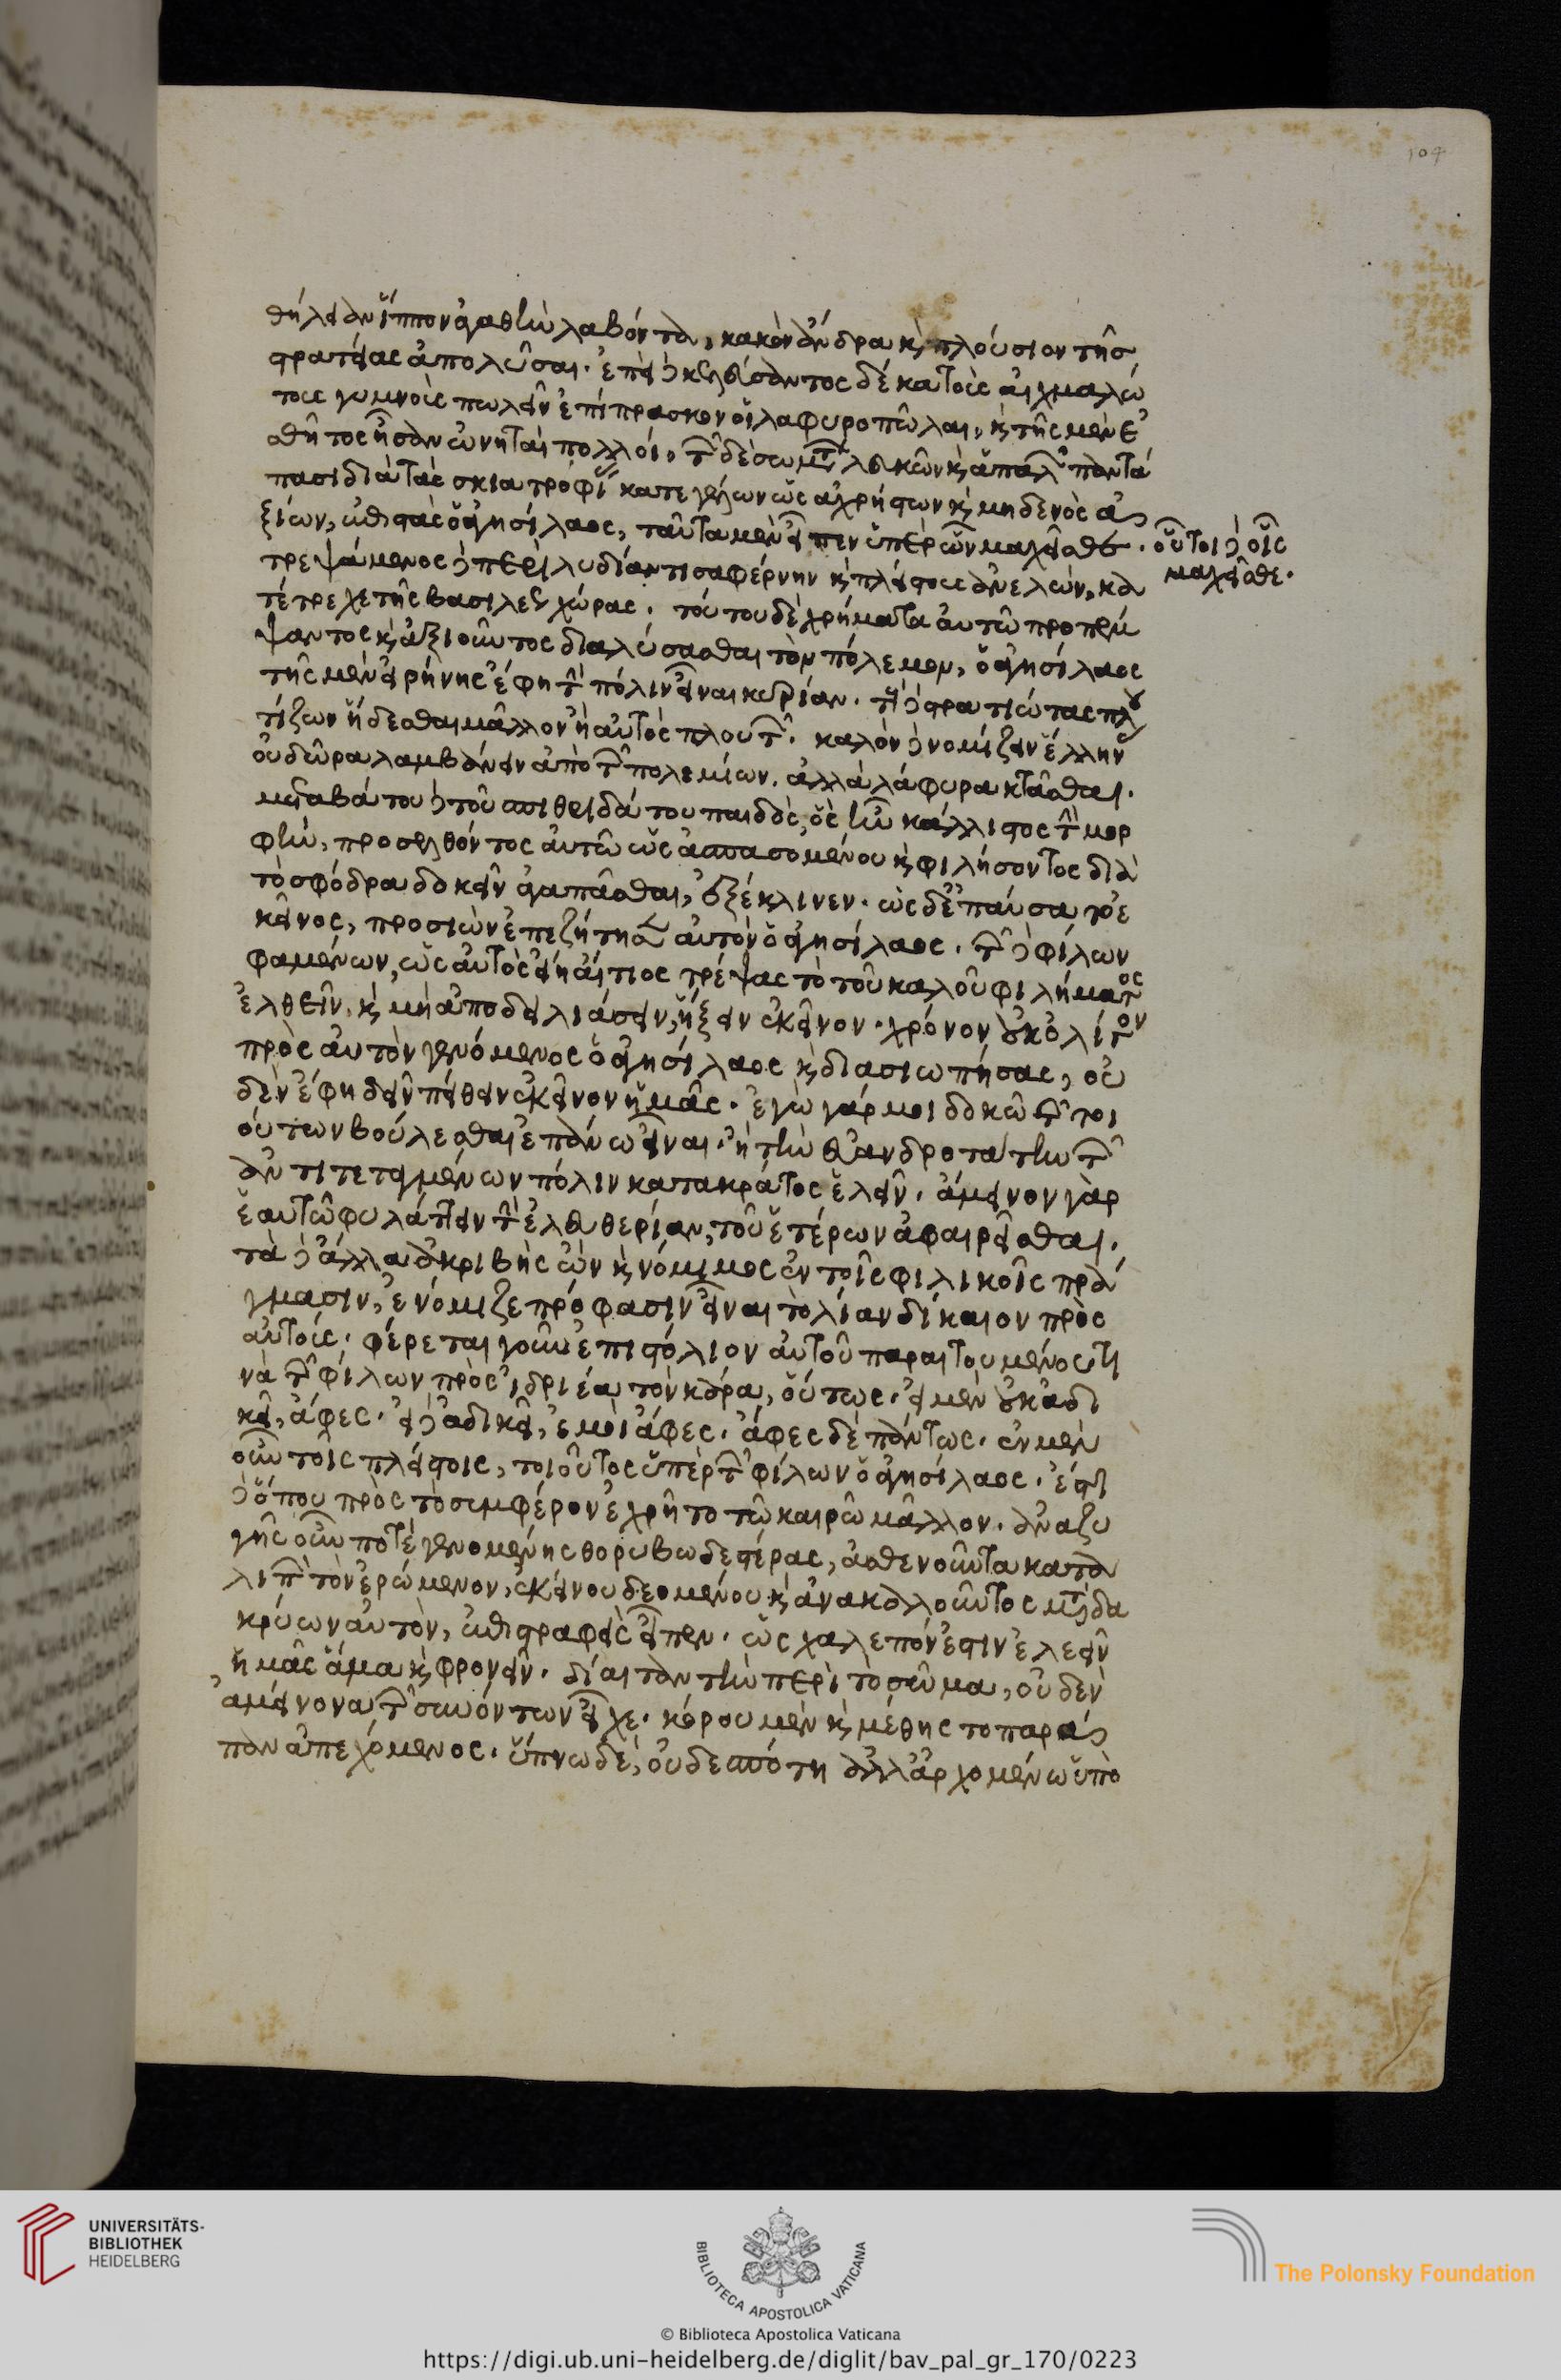 104
θήλειαν ἵππον ἀγαθὴν λαβόντα, κακὸν ἄνδρα κ πλούσιον τῆς
στρατείας ἀπολῦσαι. ἐπεὶ δὲ κελεύσαντος δέ κα τοὺς αἰχμαλώ
τους γυμνοὺς πωλεῖν ἐπίπρασκον οἱ λαφυροπῶλαι, κ τῆς μὲν ἐ
σθῆτος ἦσαν ὠνηταὶ πολλοί, τῶν δὲ σωμάτων λευκῶν κ ἁπαλῶν παντά
πασι διὰ τὰς σκιατροφίας κατεγέλων ὡς ἀχρήστων κ μηδενὸς ἀ
ξίων, ἐπιστὰς ὁ ἀγησίλαος, ταῦτα μὲν εἶπεν ὑπὲρ ὧν μάχεσθε.
οὗτοι δὲ οἷς
μάχεσθε.
τρεψάμενος δὲ περὶ λυδίαν τισαφέρνην κ πλείστους ἀνελών, κα
τέτρεχε τῆς βασιλέως χώρας. τούτου δὲ χρήματα αὐτῷ προπέμ
ψαντος κ ἀξιοῦντος διαλύσασθαι τὸν πόλεμον, ὁ ἀγησίλαος
τῆς μὲν εἰρήνης ἔφη τὴν πόλιν εἶναι κυρίαν. τοὺς δὲ στρατιώτας πλου
τίζων ἥδεσθαι μᾶλλον ἢ αὐτὸς πλουτῶν. καλὸν δὲ νομίζειν ἕλλην
οὐ δῶρα λαμβάνειν ἀπὸ τῶν πολεμίων. ἀλλὰ λάφυρα κτᾶσθαι.
μεγαβάτου δὲ τοῦ σπιθριδάτου παιδὸς, ὃς ἦν κάλλιστος τὴν μορ
φὴν, προσελθόντος αὐτῷ ὡς ἀσπασομένου κ φιλήσοντος διὰ
τὸ σφόδρα δοκεῖν ἀγαπᾶσθαι, ἐξέκλινεν. ὡς δὲ ἐπαύσατο ἐ
κεῖνος, προσιὼν ἐπεζήτησεν αὐτὸν ὁ ἀγησίλαος. τῶν δὲ φίλων
φαμένων, ὡς αὐτὸς εἴη αἴτιος τρέψας τὸ τοῦ καλοῦ φιλήματος
ἐλθεῖν, κ μὴ ἀποδειλιάσειν, ἥξειν ἐκεῖνον. χρόνον οὐκ ὀλίγον
πρὸς αὐτὸν γενόμενος ὁ ἀγησίλαος κ διασιωπήσας, οὐ
δὲν ἔφη δεῖν πείθειν ἐκεῖνον ἡμᾶς. ἐγὼ γάρ μοι δοκῶ τῶν τοι
ούτων βούλεσθαι ἐπάνω εἶναι. ἢ τὴν εὐανδροτάτην τῶν
ἀντιτεταγμένων πόλιν κατακράτος ἑλεῖν. ἄμεινον γὰρ
ἑαυτῷ φυλάττειν τὴν ἐλευθερίαν, τοῦ ἑτέρων ἀφαιρεῖσθαι.
τὰ δὲ ἄλλα ἀκριβὴς ὢν κ νόμιμος ἐν τοῖς φιλικοῖς πρά
γμασιν, ἐνόμιζε πρόφασιν εἶναι τὸ λίαν δίκαιον πρὸς
αὐτούς. φέρεται γοῦν ἐπιστόλιον αὐτοῦ παραιτουμένου τι
νὰ τῶν φίλων πρὸς ἰδριέα τὸν κᾶρα, οὕτως. εἰ μὲν οὐκ ἀδι
κεῖ, ἄφες. εἰ δὲ ἀδικεῖ, ἐμοὶ ἄφες. ἄφες δὲ πάντως. ἐν μὲν
οὖν τοῖς πλείστοις, τοιοῦτος ὑπὲρ τῶν φίλων ὁ ἀγησίλαος. ἔστι
δὲ ὅπου πρὸς τὸ συμφέρον ἐχρῆτο τῷ καιρῷ μᾶλλον. ἀναζυ
γῆς οὖν ποτὲ γενομένης θορυβωδεστέρας, ἀσθενοῦντα κατα
λιπὼν τὸν ἐρώμενον, ἐκείνου δεομένου κ ἀνακαλοῦντος μετὰ δα
κρύων αὐτὸν, ἐπιστραφεὶς εἶπεν. ὡς χαλεπόν ἐστιν ἐλεεῖν
ἡμᾶς ἅμα κ φρονεῖν. δίαιταν τὴν περὶ τὸ σῶμα, οὐδὲν
ἀμείνονα τῶν συνόντων εἶχε. κόρου μὲν κ μέθης τοπαρά
παν ἀπεχόμενος. ὕπνῳ δὲ, οὐ δεσπότῃ ἀλλ' ἀρχομένῳ ὑπὸ
UNIVERSITÄTS-
BIBLIOTHEK
HEIDELBERG
BIBLIOTECA APOSTOLICA VATICANA
The Polonsky Foundation
© Biblioteca Apostolica Vaticana
https://digi.ub.uni-heidelberg.de/diglit/bav_pal_gr_170/0223